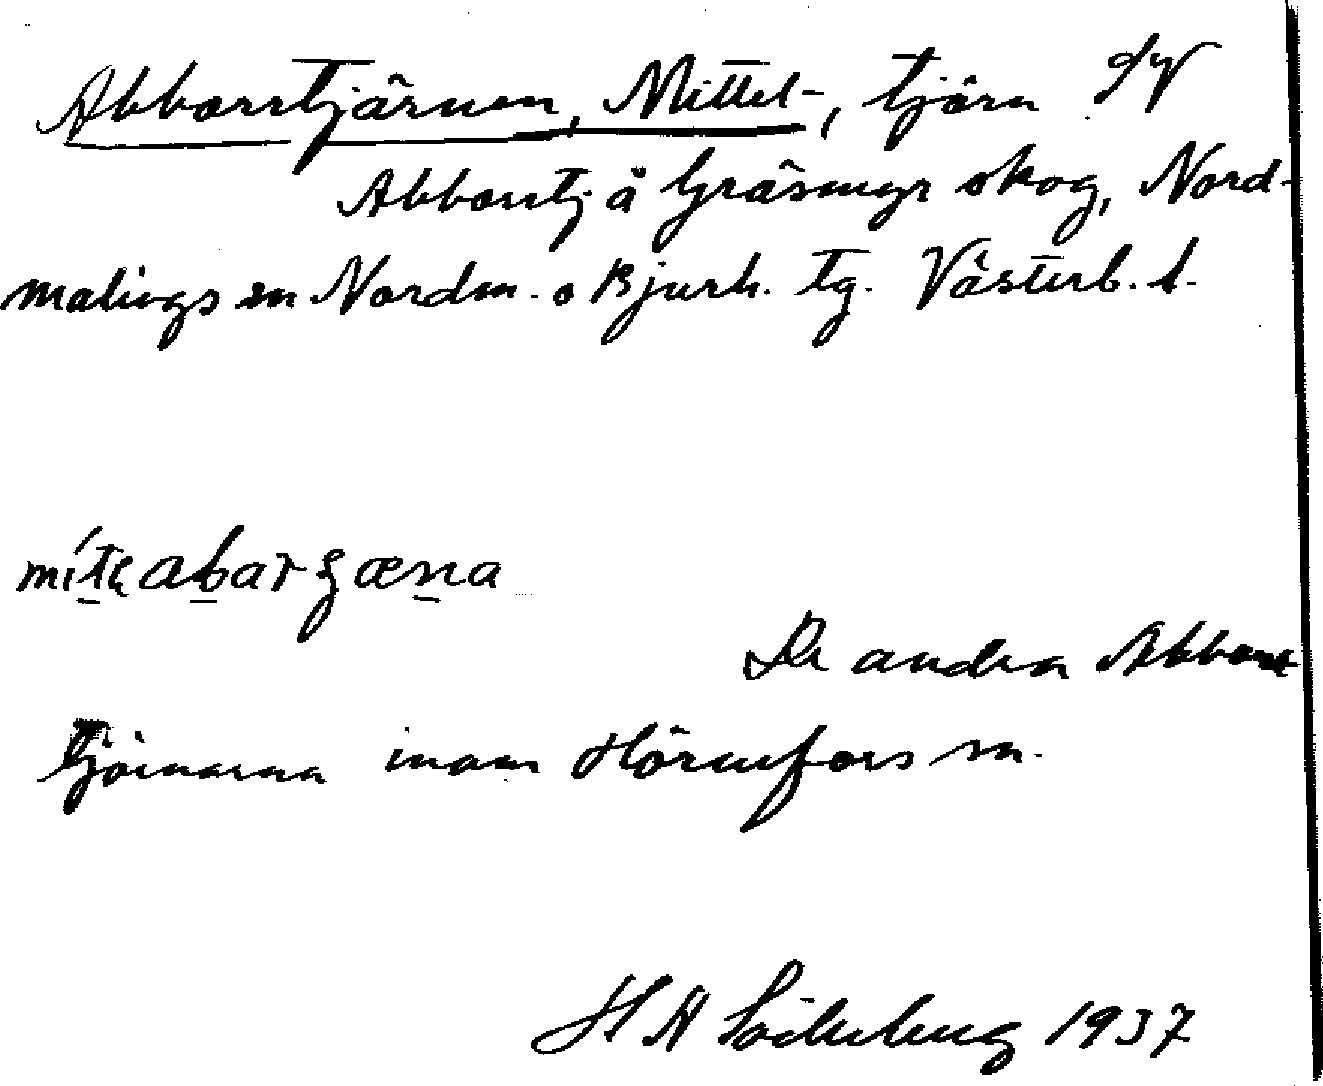 Abborrtjärnen, Mittel-, tjärn SV
Abborrtj å Gräsmyr skog, Nord-
malings sn Nordm. o Bjurh. tg. Västerb. l.
De andra Abborr-
tjärnarna inom Hörnefors sn.
H A Söderberg 1937